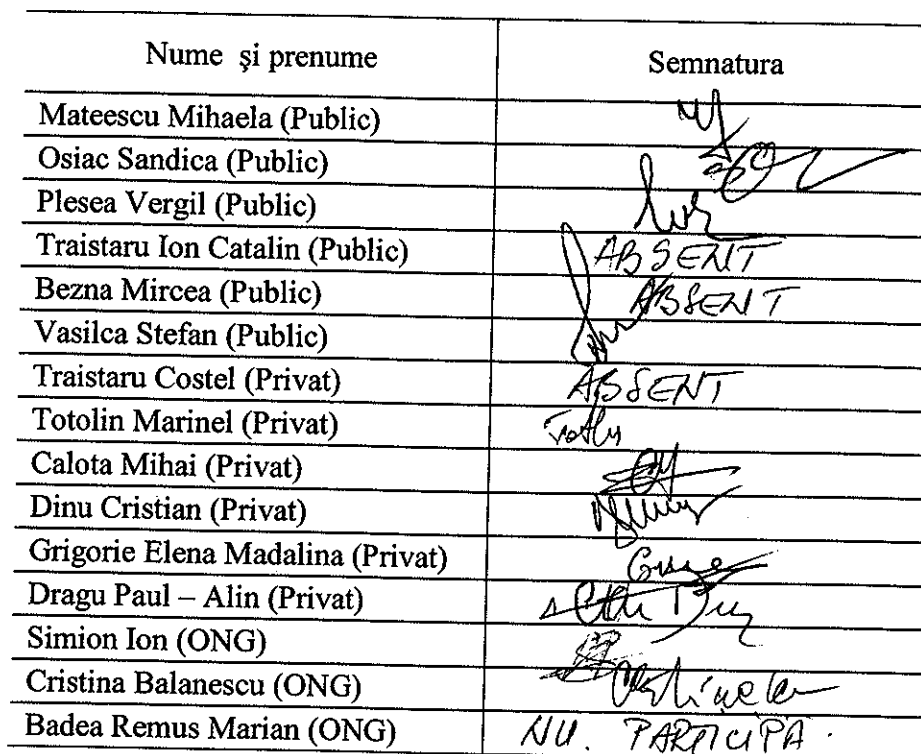 Nume și prenume Semnatura
Mateescu Mihaela (Public)
Osiac Sandica (Public)
Plesea Vergil (Public)
Traistaru Ion Catalin (Public) ABSENT
Bezna Mircea (Public) ABSENT
Vasilca Stefan (Public)
Traistaru Costel (Privat) ABSENT
Totolin Marinel (Privat)
Calota Mihai (Privat)
Dinu Cristian (Privat)
Grigorie Elena Madalina (Privat)
Dragu Paul – Alin (Privat)
Simion Ion (ONG)
Cristina Balanescu (ONG)
Badea Remus Marian (ONG) NU. PARTICIPA.